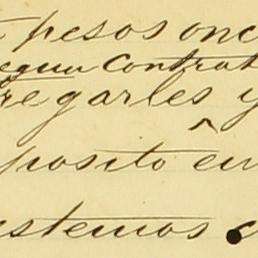 pesos onc
egun contrat
regarles y
posito en
stemos